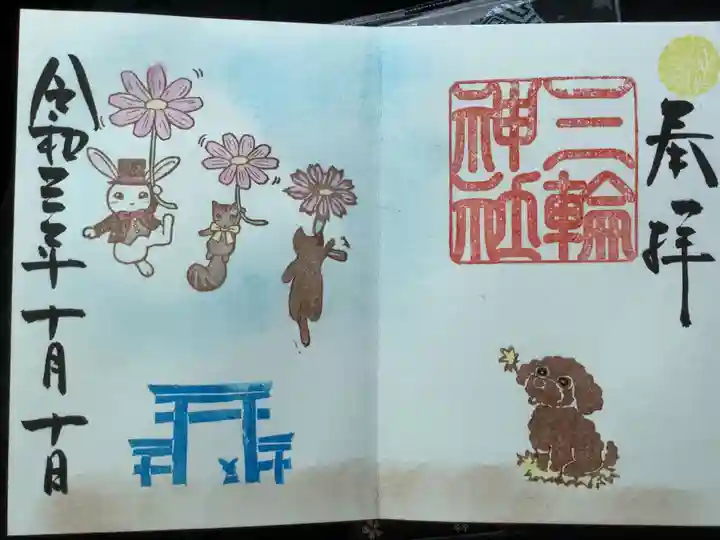 奉拝
三輪
神社
令和三年十月十日